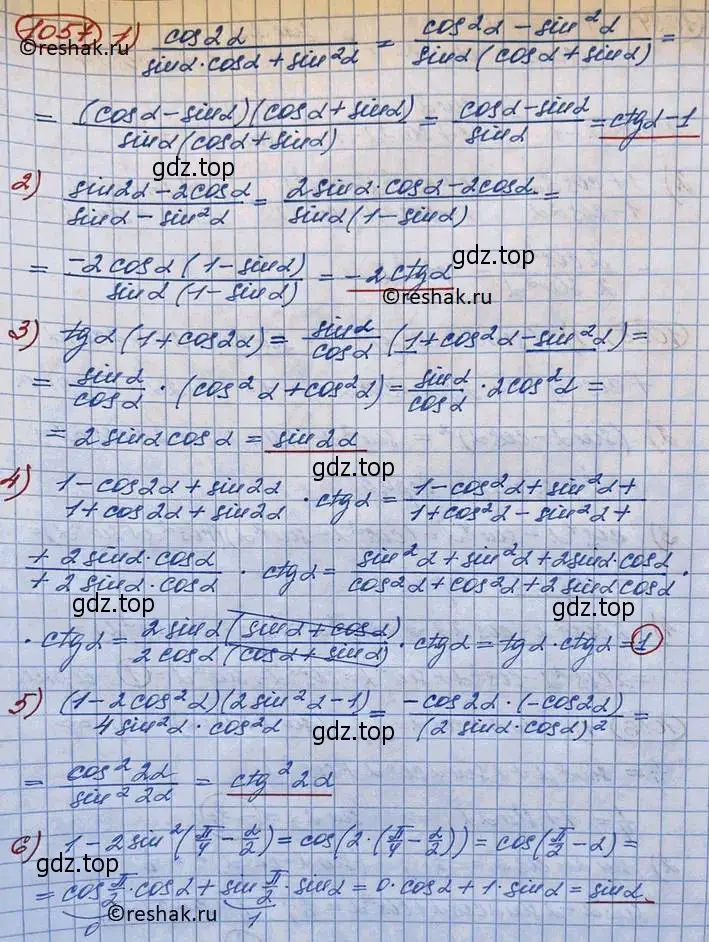 1057) 1) cos2α / (sinα·cosα + sin²α) = (cos²α − sin²α) / (sinα(cosα + sinα)) =
©reshak.ru
= (cosα − sinα)(cosα + sinα) / (sinα(cosα + sinα)) = (cosα − sinα) / sinα = ctgα − 1
gdz.top
2) (sin2α − 2cosα) / (sinα − sin²α) = (2sinα·cosα − 2cosα) / (sinα(1 − sinα)) =
gdz.top
= −2cosα(1 − sinα) / (sinα(1 − sinα)) = −2ctgα
©reshak.ru
3) tgα(1 + cos2α) = sinα/cosα (1 + cos²α − sin²α) =
= sinα/cosα · (cos²α + cos²α) = sinα/cosα · 2cos²α =
= 2sinαcosα = sin2α
gdz.top
4) (1 − cos2α + sin2α) / (1 + cos2α + sin2α) · ctgα = (1 − cos²α + sin²α + / 1 + cos²α − sin²α +
gdz.top
+ 2sinα·cosα / + 2sinα·cosα) · ctgα = (sin²α + sin²α + 2sinα·cosα) / (cos²α + cos²α + 2sinαcosα) ·
gdz.top
· ctgα = 2sinα(sinα + cosα) / (2cosα(cosα + sinα)) · ctgα = tgα·ctgα = 1
gdz.top
5) (1 − 2cos²α)(2sin²α − 1) / (4sin²α·cos²α) = −cos2α·(−cos2α) / (2sinα·cosα)² =
gdz.top
= cos²2α / sin²2α = ctg²2α
gdz.top
6) 1 − 2sin²(π/4 − α/2) = cos(2·(π/4 − α/2)) = cos(π/2 − α) =
= cos π/2·cosα + sin π/2·sinα = 0·cosα + 1·sinα = sinα
0 1
©reshak.ru
gdz.top